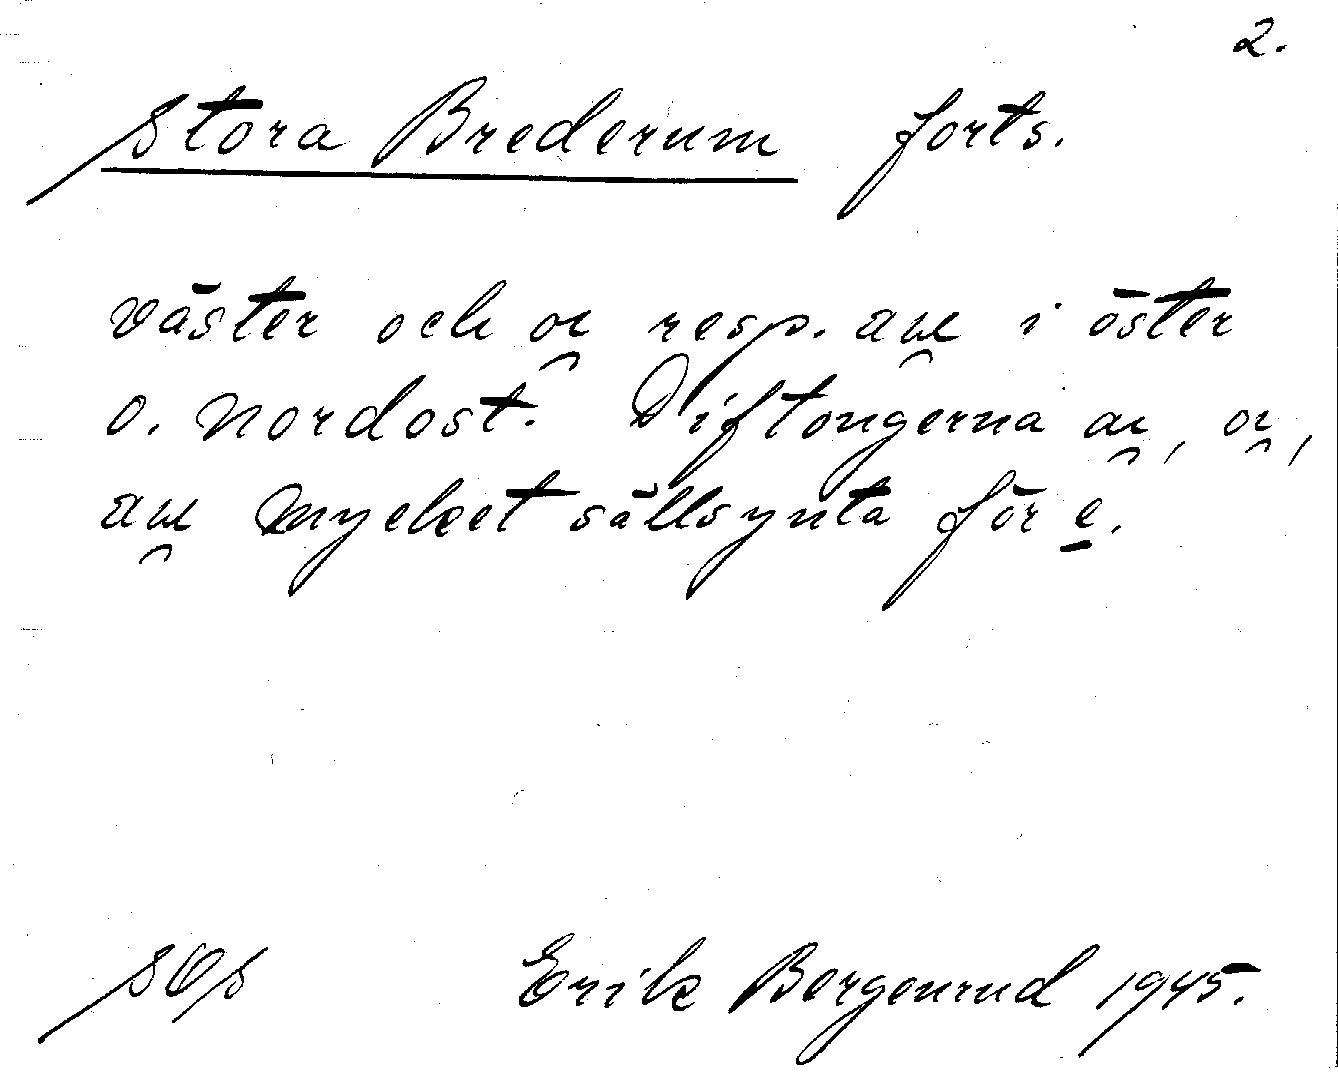 2.
Stora Brederum forts.
väster och oı̯ resp. aɯ̯ i öster
o. nordost. Diftongerna aı̯, oı̯,
aɯ̯ mycket sällsynta för e̱.
SOS Erik Bergenrud 1945.